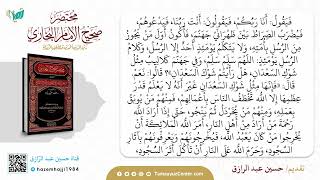 مختصر
صحيح الإمام البخاري
فَيَقُولُ: أَنَا رَبُّكُمْ، فَيَقُولُونَ: أَنْتَ رَبُّنَا، فَيَدْعُوهُمْ،
فَيُضْرَبُ الصِّرَاطُ بَيْنَ ظَهْرَانَيْ جَهَنَّمَ، فَأَكُونُ أَوَّلَ مَنْ يَجُوزُ
مِنَ الرُّسُلِ بِأُمَّتِهِ، وَلَا يَتَكَلَّمُ يَوْمَئِذٍ أَحَدٌ إِلَّا الرُّسُلُ، وَكَلَامُ
الرُّسُلِ يَوْمَئِذٍ: اللَّهُمَّ سَلِّمْ سَلِّمْ، وَفِي جَهَنَّمَ كَلَالِيبُ مِثْلُ
شَوْكِ السَّعْدَانِ، هَلْ رَأَيْتُمْ شَوْكَ السَّعْدَانِ؟» قَالُوا: نَعَمْ،
قَالَ: «فَإِنَّهَا مِثْلُ شَوْكِ السَّعْدَانِ غَيْرَ أَنَّهُ لَا يَعْلَمُ قَدْرَ
عِظَمِهَا إِلَّا اللَّهُ، تَخْطَفُ النَّاسَ بِأَعْمَالِهِمْ، فَمِنْهُمْ مَنْ يُوبَقُ
بِعَمَلِهِ، وَمِنْهُمْ مَنْ يُخَرْدَلُ ثُمَّ يَنْجُو، حَتَّى إِذَا أَرَادَ اللَّهُ
رَحْمَةَ مَنْ أَرَادَ مِنْ أَهْلِ النَّارِ، أَمَرَ اللَّهُ الْمَلَائِكَةَ أَنْ
يُخْرِجُوا مَنْ كَانَ يَعْبُدُ اللَّهَ، فَيُخْرِجُونَهُمْ وَيَعْرِفُونَهُمْ بِآثَارِ
السُّجُودِ، وَحَرَّمَ اللَّهُ عَلَى النَّارِ أَنْ تَأْكُلَ أَثَرَ السُّجُودِ،
قناة حسين عبد الرازق
hazemhajji1984
www.TamayuzCenter.com
تقديم: حسين عبد الرازق